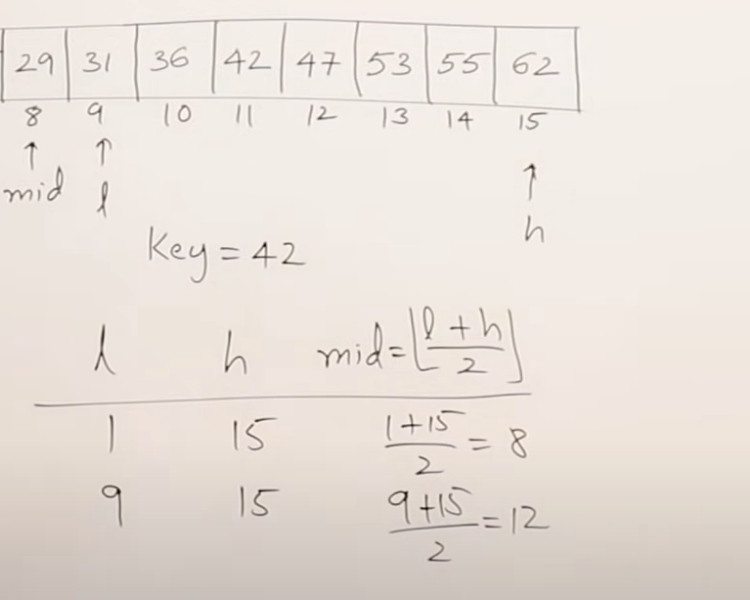 29 31 36 42 47 53 55 62
8 9 10 11 12 13 14 15
↑ ↑ ↑
mid l h
Key = 42
l h mid = ⌊(l + h)/2⌋
1 15 (1+15)/2 = 8
9 15 (9+15)/2 = 12